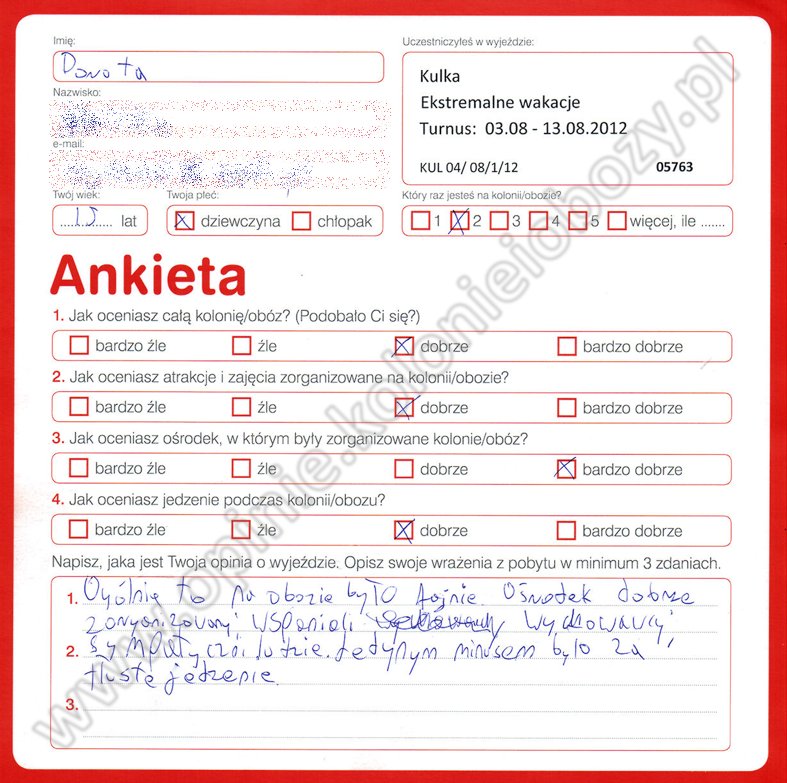 Imię:
Dorota
Uczestniczyłeś w wyjeździe:
Kulka
Ekstremalne wakacje
Turnus: 03.08 - 13.08.2012
KUL 04/ 08/1/12 05763
Nazwisko:
e-mail:
Twój wiek:
lat
Twoja płeć:
dziewczyna chłopak
Który raz jesteś na kolonii/obozie?
1 2 3 4 5 więcej, ile .......
Ankieta
1. Jak oceniasz całą kolonię/obóz? (Podobało Ci się?)
bardzo źle źle dobrze bardzo dobrze
2. Jak oceniasz atrakcje i zajęcia zorganizowane na kolonii/obozie?
bardzo źle źle dobrze bardzo dobrze
3. Jak oceniasz ośrodek, w którym były zorganizowane kolonie/obóz?
bardzo źle źle dobrze bardzo dobrze
4. Jak oceniasz jedzenie podczas kolonii/obozu?
bardzo źle źle dobrze bardzo dobrze
Napisz, jaka jest Twoja opinia o wyjeździe. Opisz swoje wrażenia z pobytu w minimum 3 zdaniach.
1. Ogólnie to na obozie było fajnie. Ośrodek dobrze
zorganizowany, wspaniali wychowawcy,
2. sympatyczni ludzie. Jedynym minusem było za
tłuste jedzenie.
3.
www.opinie.kolonieiobozy.pl